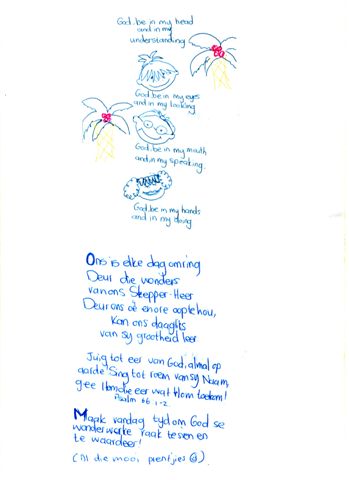 God be in my head
and in my
understanding
God be in my eyes
and in my looking
God be in my mouth
and in my speaking.
God be in my hands
and in my doing
Ons is elke dag omring
Deur die wonders
van ons Skepper-Heer
Deur ons oë en ore oop te hou,
Kan ons daagliks
van sy grootheid leer
Juig tot eer van God, almal op
aarde! Sing tot roem van sy Naam,
gee Hom die eer wat Hom toekom!
Psalm 66 1-2
Maak vandag tyd om God se
wonderwerke raak te sien en
te waardeer!
(Al die mooi prentjies)